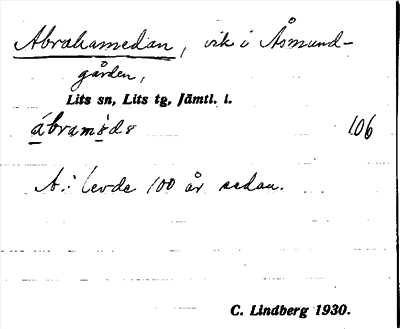 Abrahamedan, vik i Åsmund-
gården,
Lits sn, Lits tg, Jämtl. l.
106
A. levde 100 år sedan.
C. Lindberg 1930.